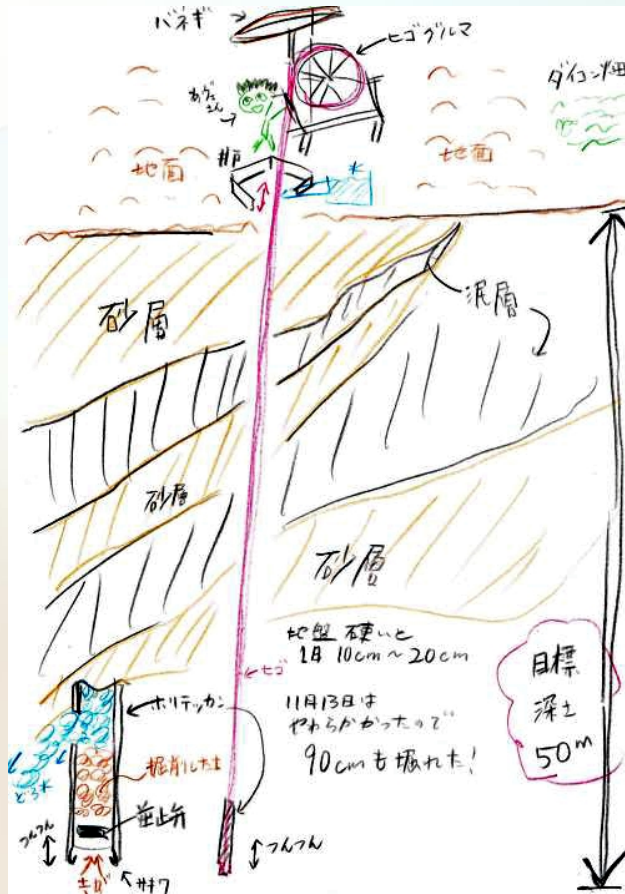 バネギ
ヒゴグルマ
ダイコン畑
井戸
水
地面
地面
泥層
砂層
砂層
砂層
地盤 硬いと
1日 10cm～20cm
ヒゴ
11月13日は
やわらかかったので
90cmも掘れた!
目標
深土
50m
ホリテッカン
掘削した土
どろ水
逆止弁
つんつん
つんつん
サキワ